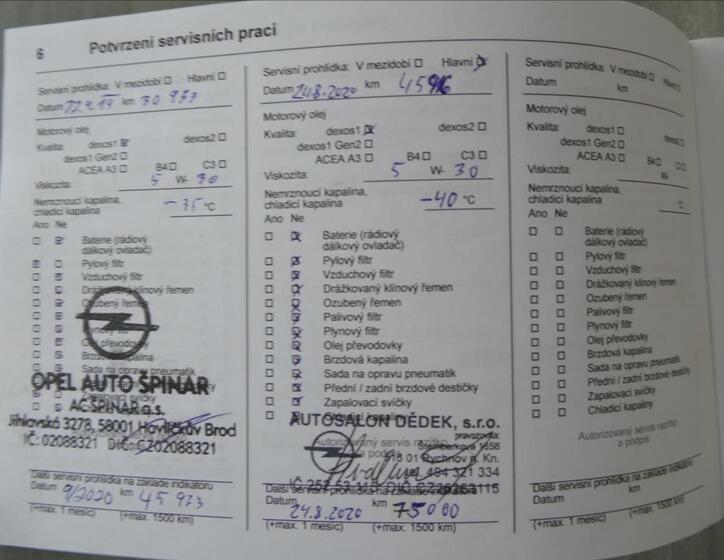 6 Potvrzení servisních prací
Servisní prohlídka: V mezidobí Hlavní
Datum km 30 973
Motorový olej
Kvalita: dexos1 dexos2
dexos1 Gen2
ACEA A3 B4 C3
Viskozita: 5 W- 30
Nemrznoucí kapalina,
chladicí kapalina -35 °C
Ano Ne
Baterie (rádiový
dálkový ovladač)
Pylový filtr
Vzduchový filtr
Drážkovaný klínový řemen
Ozubený řemen
Plynový filtr
Olej převodovky
Brzdová kapalina
Sada na opravu pneumatik
OPEL AUTO ŠPINAR
AC ŠPINAR a.s.
Jihlavská 3278, 58001 Havlíčkův Brod
IČ: 02088321 DIČ: CZ02088321
Další servisní prohlídka na základě indikátoru
Datum 9/2020 km 45 973
(+max. 1 měsíc) (+max. 1500 km)
Servisní prohlídka: V mezidobí Hlavní
Datum 24.8.2020 km
Motorový olej
Kvalita: dexos1 dexos2
dexos1 Gen2
ACEA A3 B4 C3
Viskozita: 5 W- 30
Nemrznoucí kapalina,
chladicí kapalina -40 °C
Ano Ne
Baterie (rádiový
dálkový ovladač)
Pylový filtr
Vzduchový filtr
Drážkovaný klínový řemen
Ozubený řemen
Palivový filtr
Plynový filtr
Olej převodovky
Brzdová kapalina
Sada na opravu pneumatik
Přední / zadní brzdové destičky
Zapalovací svíčky
Chladicí kapaliny
AUTOSALON DĚDEK, s.r.o.
Autorizovaný servis razítko
a podpis
provozovna:
Štemberkova 1658
Rychnov n. Kn.
494 321 334
Další servisní prohlídka na základě
Datum 24.8.2020 km 75000
(+max. 1 měsíc) (+max. 1500 km)
Servisní prohlídka: V mezidobí Hlavní
Datum km
Motorový olej
Kvalita: dexos1 dexos2
dexos1 Gen2
ACEA A3 B4 C3
Viskozita: W-
Nemrznoucí kapalina,
chladicí kapalina °C
Ano Ne
Baterie (rádiový
dálkový ovladač)
Pylový filtr
Vzduchový filtr
Drážkovaný klínový řemen
Ozubený řemen
Palivový filtr
Plynový filtr
Olej převodovky
Brzdová kapalina
Sada na opravu pneumatik
Přední / zadní brzdové destičky
Zapalovací svíčky
Chladicí kapaliny
Autorizovaný servis razítko
a podpis
Další servisní prohlídka na základě indikátoru
Datum km
(+max. 1 měsíc) (+max. 1500 km)